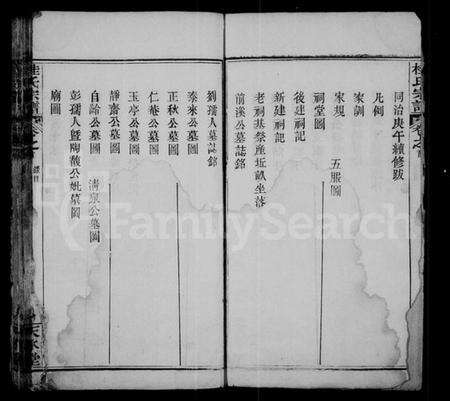 桂氏宗譜
同治庚午續修跋
凡例
家訓
家規
五服圖
祠堂圖
後建祠記
新建祠記
老祠基祭産坵畝坐落
前溪公墓誌銘
劉孺人墓誌銘
泰來公墓圖
正秋公墓圖
仁庵公墓圖
玉亭公墓圖
靜齋公墓圖
自諭公墓圖 清泉公墓圖
彭孺人暨陶馥公妣墓圖
廟圖
FamilySearch